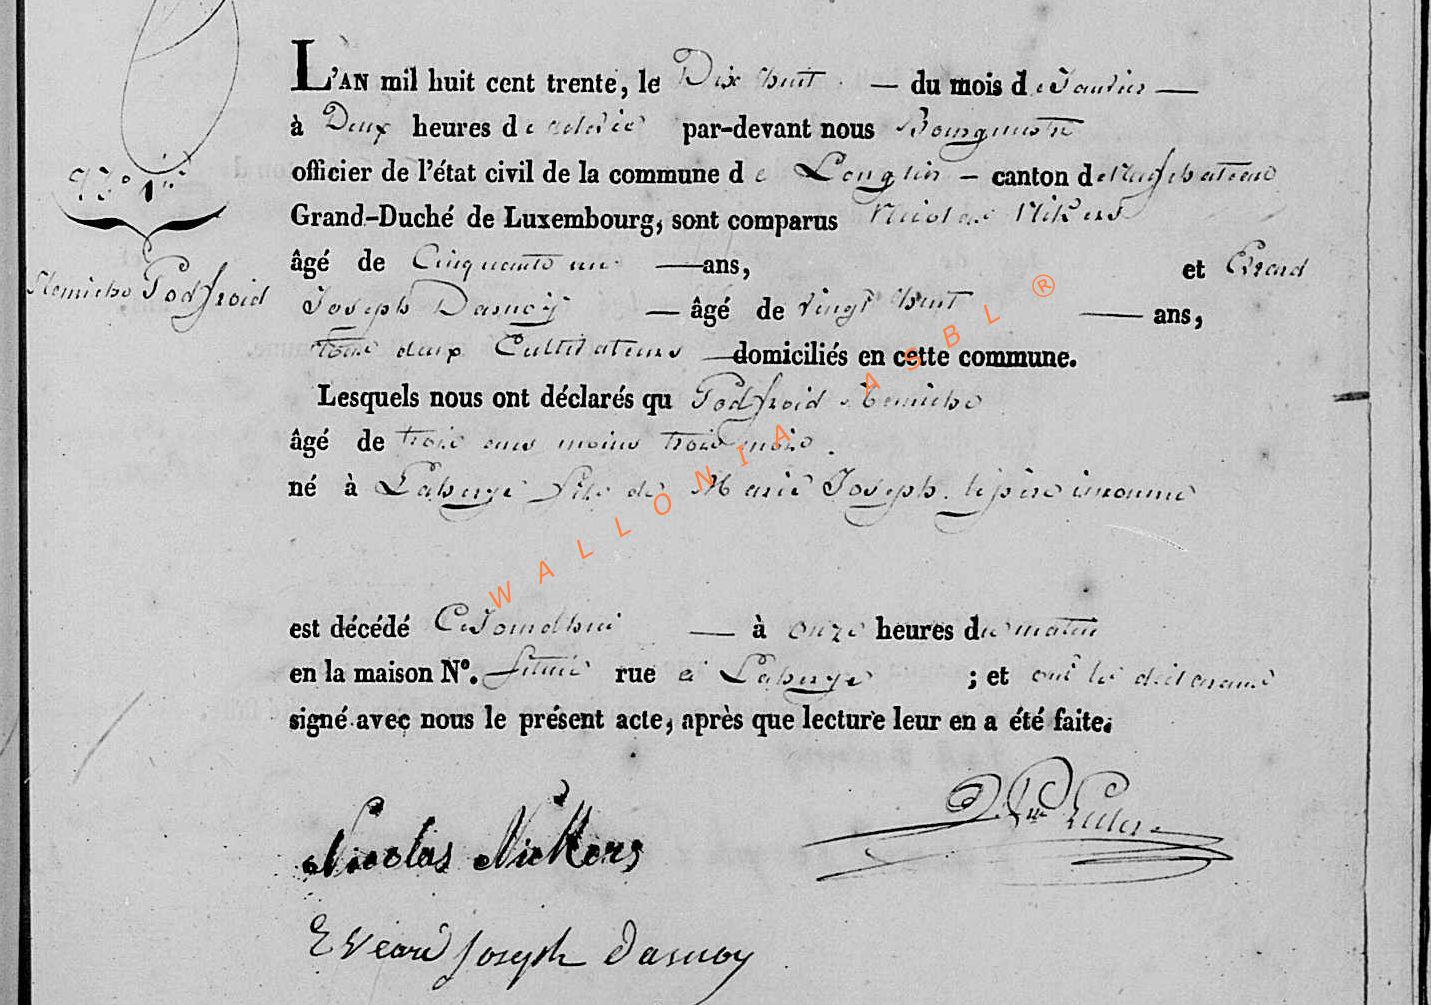 L'AN mil huit cent trente, le Dix huit — du mois de Janvier —
à Deux heures de relevée par-devant nous Bourgmestre
officier de l'état civil de la commune de Longlier — canton de Neufchateau
N.° 1er
Grand-Duché de Luxembourg, sont comparus Nicolas Nikers
âgé de Cinquante un — ans, et Evrard
Godfroid
Joseph Dasnoy — âgé de vingt huit — ans,
Tous deux Cultivateurs — domiciliés en cette commune.
Lesquels nous ont déclarés qu Godfroid
âgé de trois ans moins trois mois.
né à Laherye fils de Marie Joseph. le père inconnu
WALLONIA ASBL ®
est décédé Cejourdhui — à onze heures du matin
en la maison N°. située rue à Laherye ; et ont les déclarans
signé avec nous le présent acte, après que lecture leur en a été faite.
Nicolas Nickers
Evrard Joseph Dasnoy